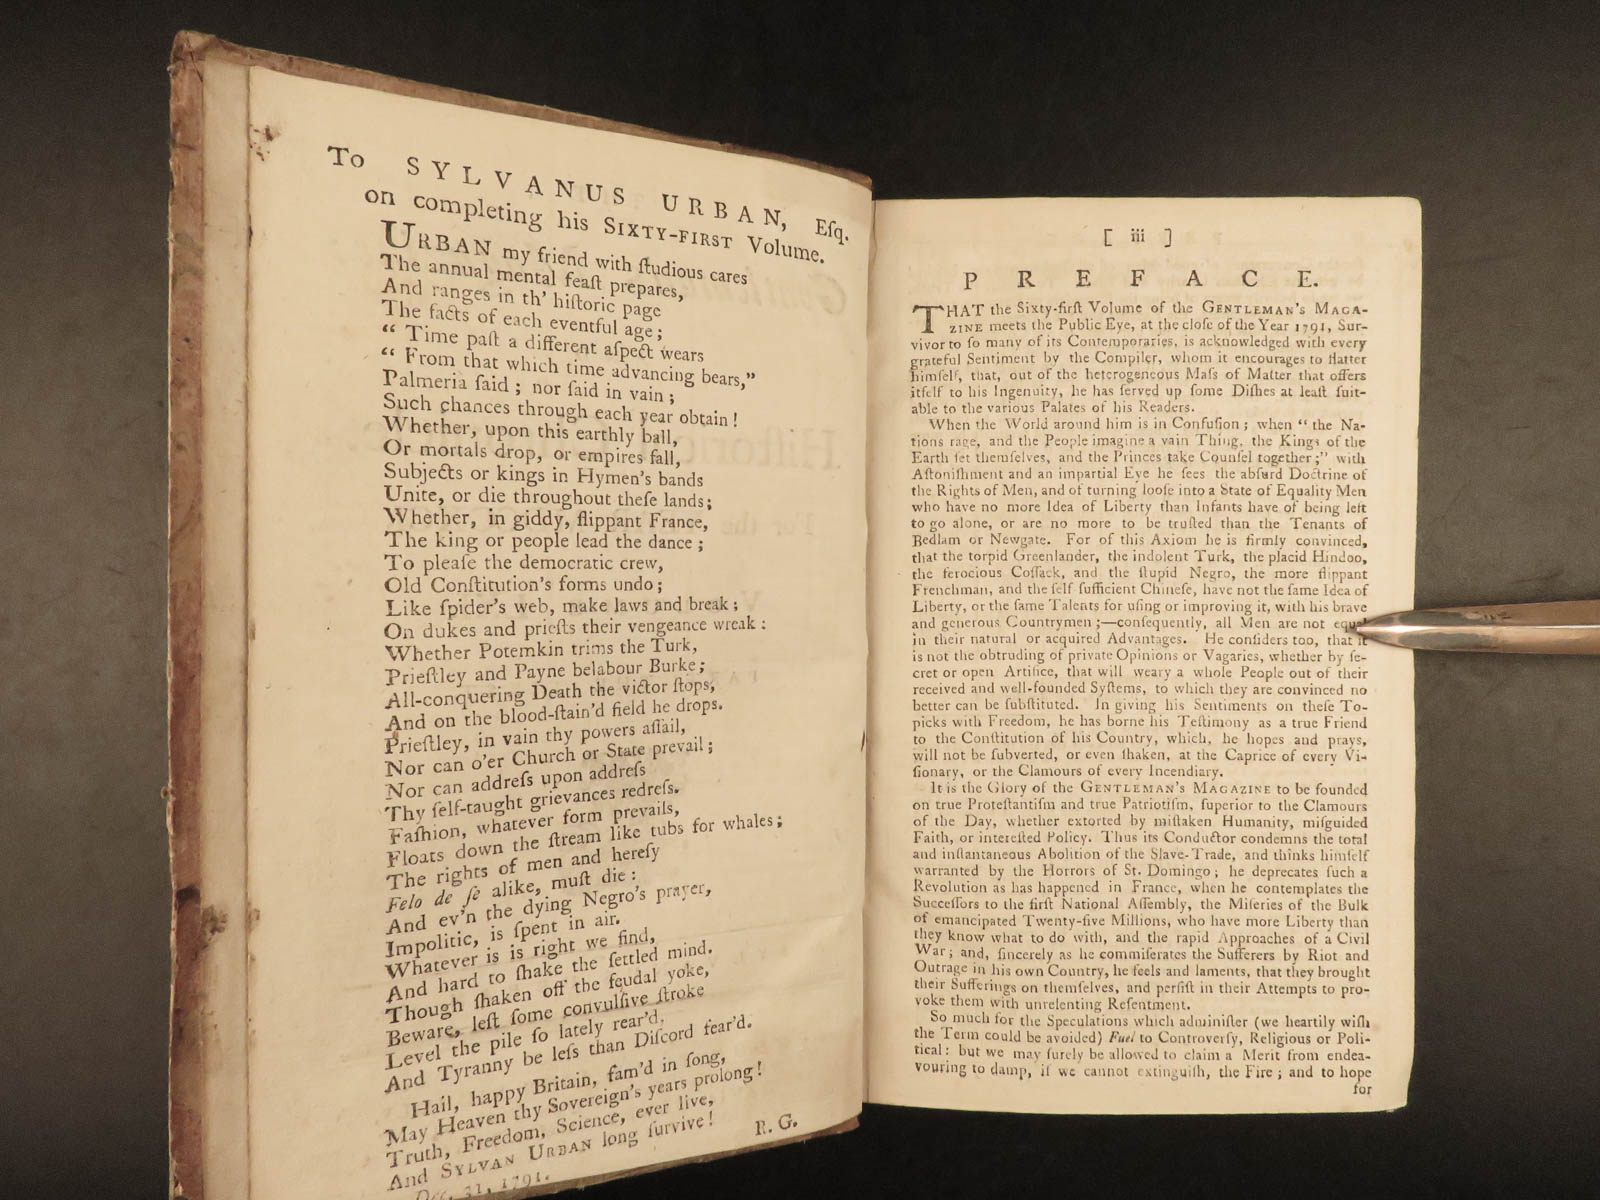 To SYLVANUS URBAN, Eſq.
on completing his SIXTY-FIRST Volume.
URBAN my friend with ſtudious cares
The annual mental feaſt prepares,
And ranges in th' hiſtoric page
The facts of each eventful age;
“ Time paſt a different aſpect wears
“ From that which time advancing bears,”
Palmeria ſaid; nor ſaid in vain;
Such chances through each year obtain!
Whether, upon this earthly ball,
Or mortals drop, or empires fall,
Subjects or kings in Hymen's bands
Unite, or die throughout theſe lands;
Whether, in giddy, flippant France,
The king or people lead the dance;
To pleaſe the democratic crew,
Old Conſtitution's forms undo;
Like ſpider's web, make laws and break;
On dukes and prieſts their vengeance wreak:
Whether Potemkin trims the Turk,
Prieſtley and Payne belabour Burke;
All-conquering Death the victor ſtops,
And on the blood-ſtain'd field he drops.
Prieſtley, in vain thy powers aſſail,
Nor can o'er Church or State prevail;
Nor can addreſs upon addreſs
Thy ſelf-taught grievances redreſs.
Faſhion, whatever form prevails,
Floats down the ſtream like tubs for whales;
The rights of men and hereſy
Felo de ſe alike, muſt die:
And ev'n the dying Negro's prayer,
Impolitic, is ſpent in air.
Whatever is is right we find,
And hard to ſhake the ſettled mind.
Though ſhaken off the feudal yoke,
Beware, leſt ſome convulſive ſtroke
Level the pile ſo lately rear'd,
And Tyranny be leſs than Diſcord fear'd.
Hail, happy Britain, fam'd in ſong,
May Heaven thy Sovereign's years prolong!
Truth, Freedom, Science, ever live,
And SYLVAN URBAN long ſurvive!
Dec. 31, 1791.
R. G.
[ iii ]
PREFACE.
THAT the Sixty-firſt Volume of the GENTLEMAN'S MAGA-
ZINE meets the Public Eye, at the cloſe of the Year 1791, Sur-
vivor to ſo many of its Contemporaries, is acknowledged with every
grateful Sentiment by the Compiler, whom it encourages to flatter
himſelf, that, out of the heterogeneous Maſs of Matter that offers
itſelf to his Ingenuity, he has ſerved up ſome Diſhes at leaſt ſuit-
able to the various Palates of his Readers.
When the World around him is in Confuſion; when “ the Na-
tions rage, and the People imagine a vain Thing, the Kings of the
Earth ſet themſelves, and the Princes take Counſel together;” with
Aſtoniſhment and an impartial Eye he ſees the abſurd Doctrine of
the Rights of Men, and of turning looſe into a State of Equality Men
who have no more Idea of Liberty than Infants have of being left
to go alone, or are no more to be truſted than the Tenants of
Bedlam or Newgate. For of this Axiom he is firmly convinced,
that the torpid Greenlander, the indolent Turk, the placid Hindoo,
the ferocious Coſſack, and the ſtupid Negro, the more flippant
Frenchman, and the ſelf ſufficient Chineſe, have not the ſame Idea of
Liberty, or the ſame Talents for uſing or improving it, with his brave
and generous Countrymen;—conſequently, all Men are not equal
in their natural or acquired Advantages. He conſiders too, that it
is not the obtruding of private Opinions or Vagaries, whether by ſe-
cret or open Artifice, that will weary a whole People out of their
received and well-founded Syſtems, to which they are convinced no
better can be ſubſtituted. In giving his Sentiments on theſe To-
picks with Freedom, he has borne his Teſtimony as a true Friend
to the Conſtitution of his Country, which, he hopes and prays,
will not be ſubverted, or even ſhaken, at the Caprice of every Vi-
ſionary, or the Clamours of every Incendiary.
It is the Glory of the GENTLEMAN'S MAGAZINE to be founded
on true Proteſtantiſm and true Patriotiſm, ſuperior to the Clamours
of the Day, whether extorted by miſtaken Humanity, miſguided
Faith, or intereſted Policy. Thus its Conductor condemns the total
and inſtantaneous Abolition of the Slave-Trade, and thinks himſelf
warranted by the Horrors of St. Domingo; he deprecates ſuch a
Revolution as has happened in France, when he contemplates the
Succeſſors to the firſt National Aſſembly, the Miſeries of the Bulk
of emancipated Twenty-five Millions, who have more Liberty than
they know what to do with, and the rapid Approaches of a Civil
War; and, ſincerely as he commiſerates the Sufferers by Riot and
Outrage in his own Country, he feels and laments, that they brought
their Sufferings on themſelves, and perſiſt in their Attempts to pro-
voke them with unrelenting Reſentment.
So much for the Speculations which adminiſter (we heartily wiſh
the Term could be avoided) Fuel to Controverſy, Religious or Poli-
tical: but we may ſurely be allowed to claim a Merit from endea-
vouring to damp, if we cannot extinguiſh, the Fire; and to hope
for